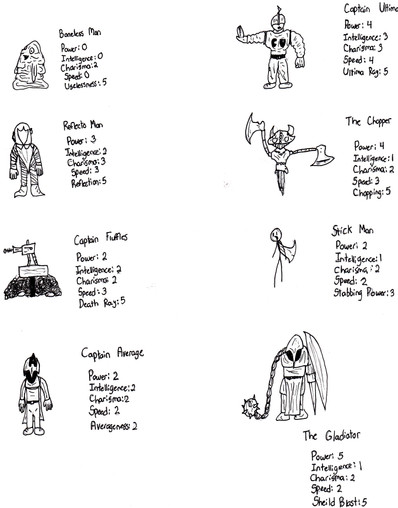 Boneless Man
Power: 0
Intelligence: 0
Charisma: 2
Speed: 0
Uselessness: 5
Reflecto Man
Power: 3
Intelligence: 2
Charisma: 3
Speed: 3
Reflection: 5
Captain Fluffles
Power: 2
Intelligence: 2
Charisma: 2
Speed: 3
Death Ray: 5
Captain Average
Power: 2
Intelligence: 2
Charisma: 2
Speed: 2
Averageness: 2
Captain Ultima
Power: 4
Intelligence: 3
Charisma: 3
Speed: 4
Ultima Ray: 5
The Chopper
Power: 4
Intelligence: 1
Charisma: 2
Speed: 3
Chopping: 5
Stick Man
Power: 2
Intelligence: 1
Charisma: 2
Speed: 2
Stabbing Power: 3
The Gladiator
Power: 5
Intelligence: 1
Charisma: 2
Speed: 2
Sheild Blast: 5